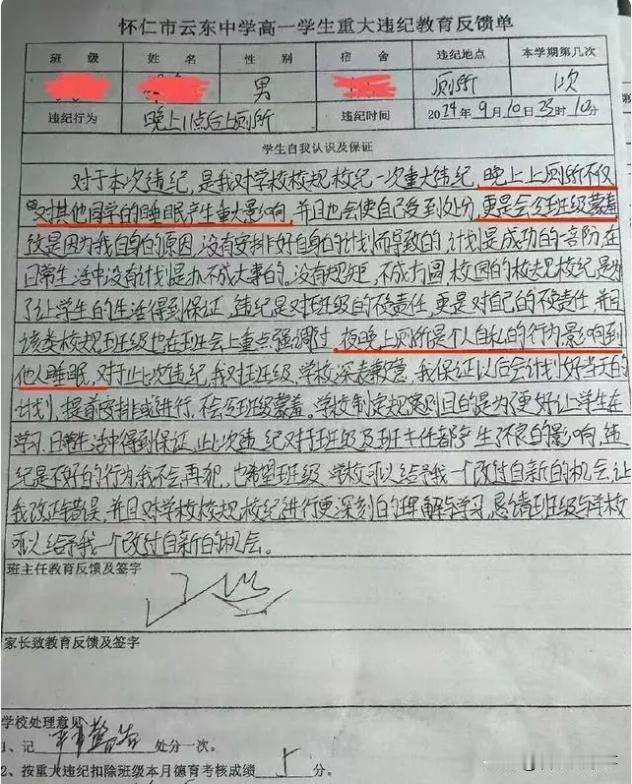 怀仁市云东中学高一学生重大违纪教育反馈单
班 级 姓 名 性 别 宿 舍 违纪地点 本学期第几次
男 厕所 1次
违纪行为 晚上11点后上厕所 违纪时间 2024年9月10日23时10分
学生自我认识及保证
对于本次违纪,是我对学校校规校纪一次重大违纪,晚上上厕所不仅
对其他同学的睡眠产生重大影响,并且也会使自己受到处分,更是会给班级蒙羞
这是因为我自身的原因,没有安排好自身的计划而导致的,计划是成功的一部份,在
日常生活中没有计划是办不成大事的。没有规矩,不成方圆,校园的校规校纪是为
了让学生的生活得到保证,违纪是对班级的不负责任,更是对自己的不负责任,并且
该类校规班级也在班会上重点强调过,夜晚上厕所是个人自私的行为,影响到
他人睡眠,对于此次违纪,我对班级、学校深表歉意,我保证以后会计划好当天的
计划,提前安排或进行,不会给班级蒙羞。学校制定规则目的是为了更好让学生在
学习、日常生活中得到保证,此次违纪对班级及班主任都产生了不良的影响,违
纪是不好的行为,我不会再犯,也希望班级、学校可以给予我一个改过自新的机会,让
我改正错误,并且对学校校规、校纪进行更深刻的理解与学习,恳请班级与学校
可以给予我一个改过自新的机会。
班主任教育反馈及签字
家长致教育反馈及签字
学校处理意见
1、记 严重警告 处分一次。
2、按重大违纪扣除班级本月德育考核成绩 5 分。